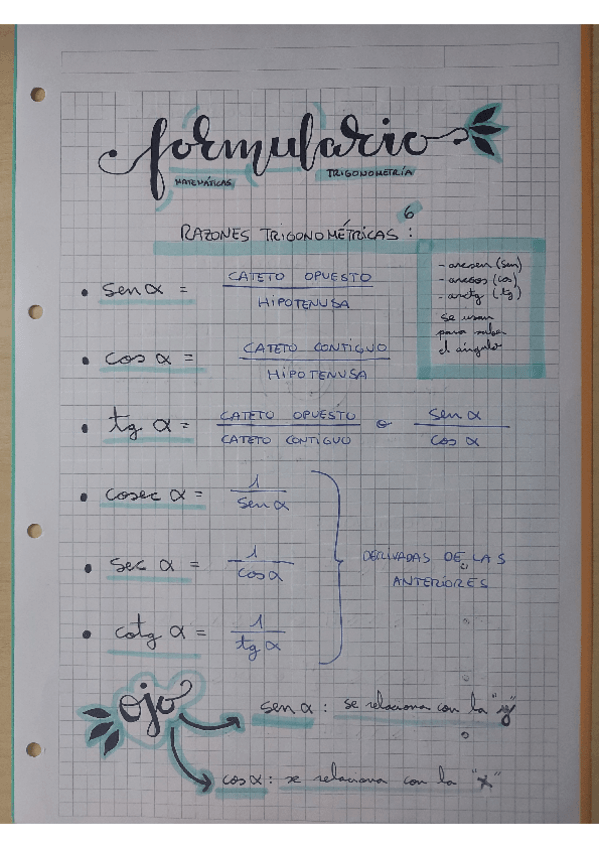 formulario
MATEMÁTICAS
TRIGONOMETRÍA
6
RAZONES TRIGONOMÉTRICAS :
- arcsen (sen)
- arcos (cos)
- arctg (tg)
se usan
para saber
el ángulo
• sen α = CATETO OPUESTO / HIPOTENUSA
• cos α = CATETO CONTIGUO / HIPOTENUSA
• tg α = CATETO OPUESTO / CATETO CONTIGUO o sen α / cos α
• cosec α = 1 / sen α
• sec α = 1 / cos α
• cotg α = 1 / tg α
DERIVADAS DE LAS
ANTERIORES
ojo
sen α : se relaciona con la "y"
cos α : se relaciona con la "x"